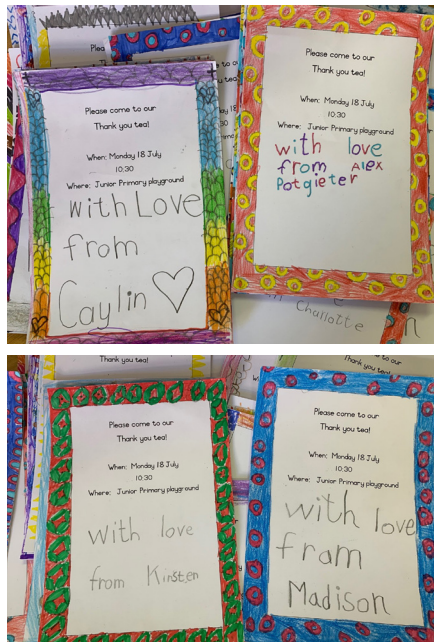 Plea
Please come to our
Thank you tea!
When: Monday 18 July
10:30
Where: Junior Primary playground
with Love
from
Caylin
Please come to our
Thank you tea!
When: Monday 18 July
10:30
Where: Junior Primary playground
with love
from Alex
Potgieter
Charlotte
Please come to our
Thank you tea!
When: Monday 18 July
10:30
Where: Junior Primary playground
with love
from Kirsten
Please come to our
Thank you tea!
When: Monday 18 July
10:30
Where: Junior Primary playground
with love
fram
Madison